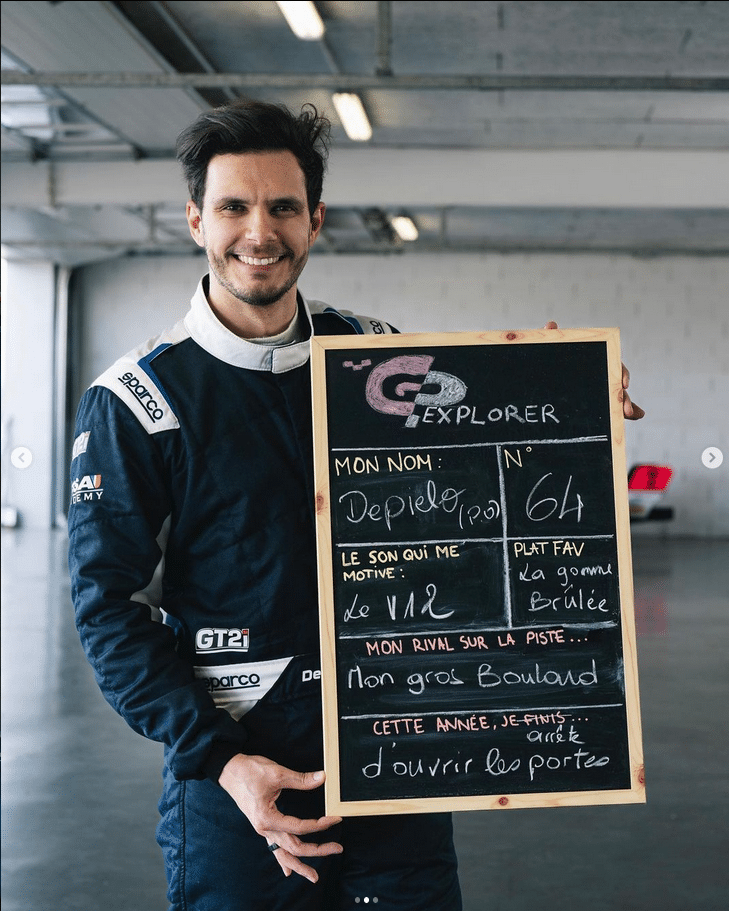 GP
EXPLORER
MON NOM :
Depielo (p.o)
N°
64
LE SON QUI ME
MOTIVE :
Le V12
PLAT FAV
La gomme
Brûlée
MON RIVAL SUR LA PISTE...
Mon gros Boulard
CETTE ANNÉE, JE FINIS...
arrête
d'ouvrir les portes
sparco
DEMY
GT2i
sparco
De